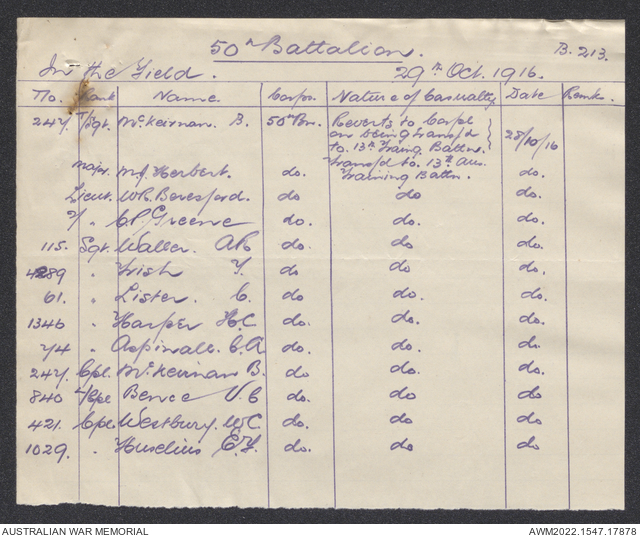 50th Battalion. B. 213.
In the Field. 29th Oct. 1916.
No. Rank Name. Corps. Nature of Casualty Date Remks.
247. T/Sgt. McKeirnan. B. 50th Bn. Reverts to Corpl
on being transf'd
to 13th Traing Battn. 25/10/16
Major. Herbert. do. Transf'd to 13th Aus.
Training Battn. do.
Lieut. Beresford. do do do.
" Greene do. do. do.
115. Sgt. Waller. A.R do. do do.
4289 " Irish do do do.
61. " Lister. C. do. do. do.
1346 " Harper H.C do. do do.
74 " Aspinall. C.A do. do do.
247. Cpl. McKeirnan B. do. do do.
840 L/Cpl Bence V.C do. do. do
421. Cpl. Westbury. W.C. do. do do
1029. " Huselius E.F. do. do do
AUSTRALIAN WAR MEMORIAL AWM2022.1547.17878